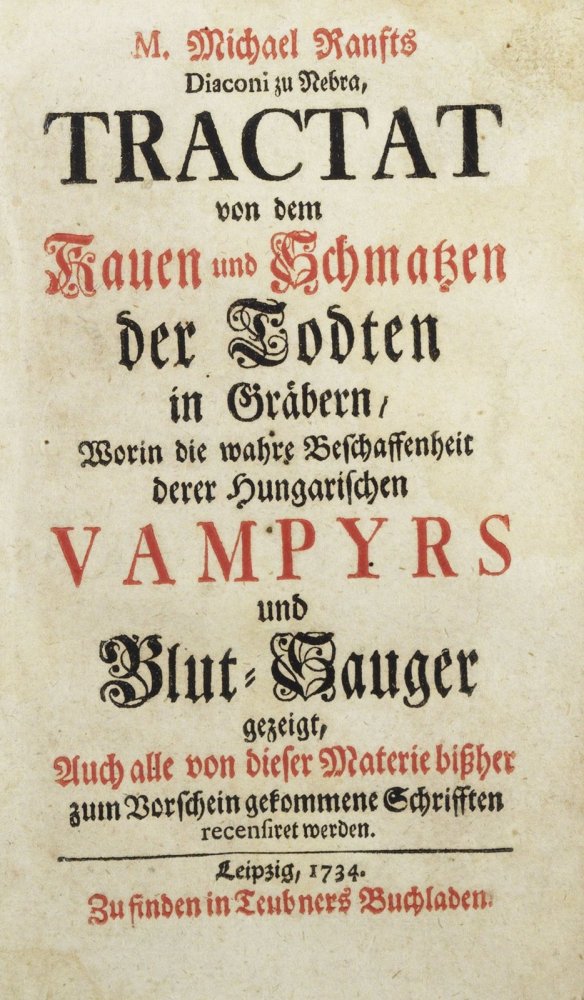 M. Michael Ranfts
Diaconi zu Nebra,
TRACTAT
von dem
Kauen und Schmatzen
der Todten
in Gräbern,
Worin die wahre Beschaffenheit
derer Hungarischen
VAMPYRS
und
Blut-Sauger
gezeigt,
Auch alle von dieser Materie bißher
zum Vorschein gekommene Schrifften
recensiret werden.
Leipzig, 1734.
Zu finden in Teubners Buchladen.